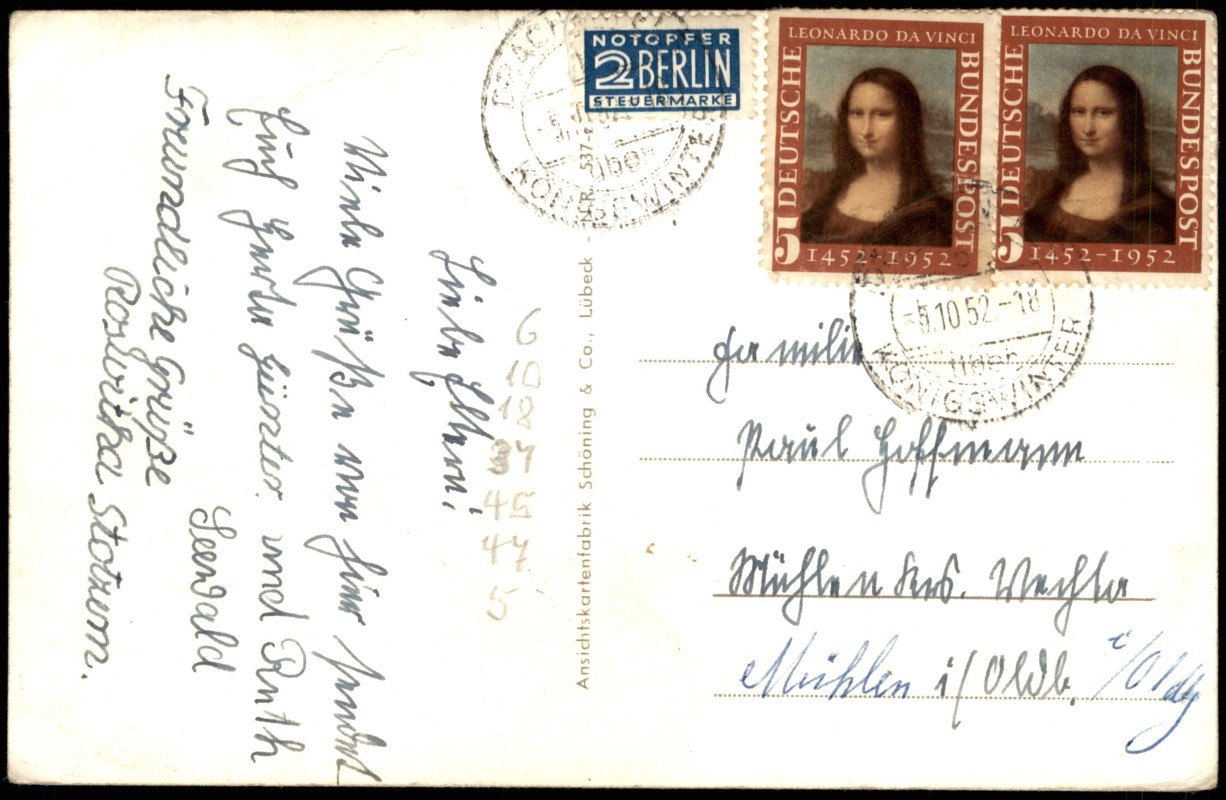 NOTOPFER
2 BERLIN
STEUERMARKE
LEONARDO DA VINCI
DEUTSCHE
BUNDESPOST
5
1452-1952
LEONARDO DA VINCI
DEUTSCHE
BUNDESPOST
5
1452-1952
KÖNIGSWINTE
5.10.52.-18
KÖNIGSWINTER
Liebe Eltern!
Viele Grüße von hier sendet
Euch Günter und Ruth
Seewald
Freundliche Grüße
Roswitha
6
10
18
45
47
5
Ansichtskartenfabrik Schöning & Co., Lübeck - NR. 537
Familie
Paul Hoffmann
Mühlen Krs. Vechta
Mühlen i/Oldb.